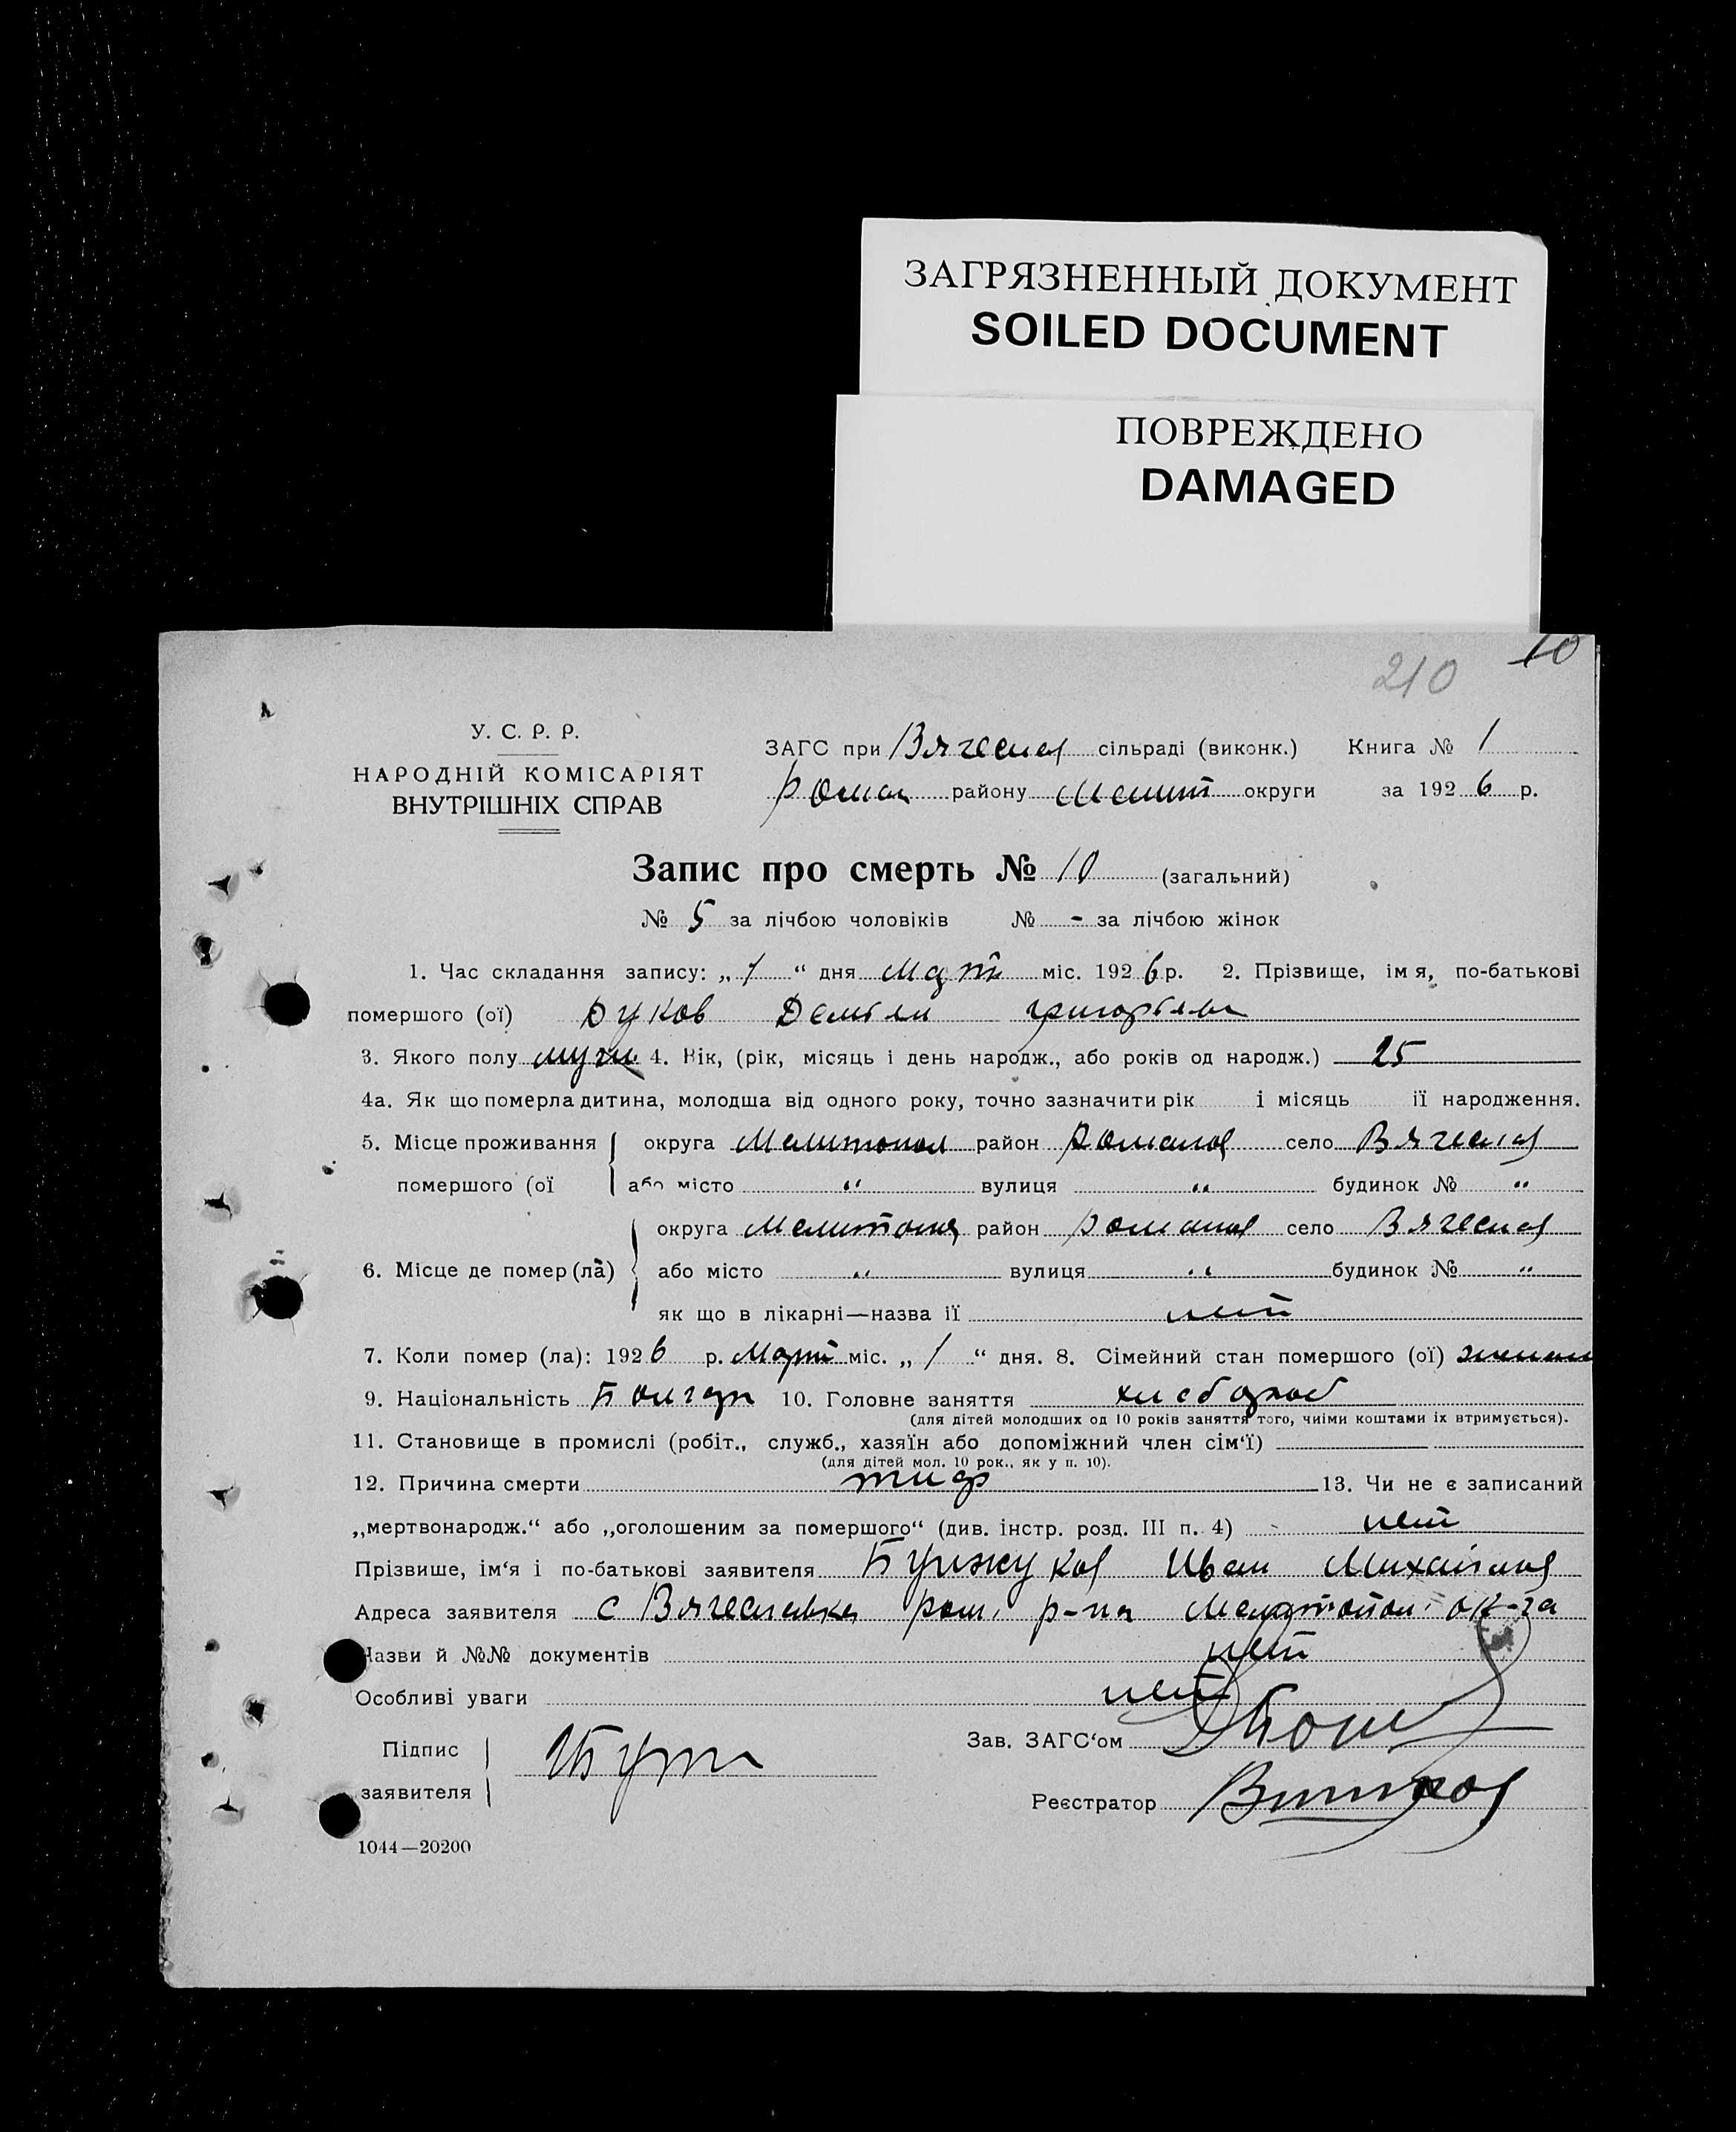 ЗАГРЯЗНЕННЫЙ ДОКУМЕНТ
SOILED DOCUMENT
ПОВРЕЖДЕНО
DAMAGED
210 10
У. С. Р. Р.
НАРОДНІЙ КОМІСАРІЯТ
ВНУТРІШНІХ СПРАВ
ЗАГС при Вячеслав сільраді (виконк.) Книга № 1
Роман району Мелит округи за 1926 р.
Запис про смерть № 10 (загальний)
№ 5 за лічбою чоловіків № - за лічбою жінок
1. Час складання запису: „ 1 “ дня Март міс. 1926 р. 2. Прізвище, імя, по-батькові
помершого (ої) Дуков
3. Якого полу муж. 4. Вік, (рік, місяць і день народж., або років од народж.) 25
4а. Як що померла дитина, молодша від одного року, точно зазначити рік і місяць ії народження.
5. Місце проживання округа Мелитопол район Романов село Вячеслав
помершого (ої або місто " вулиця " будинок № "
округа Мелитопол район Романов село Вячеслав
6. Місце де помер (ла) або місто " вулиця " будинок № "
як що в лікарні—назва ії нет
7. Коли помер (ла): 1926 р. Март міс. „ 1 “ дня. 8. Сімейний стан помершого (ої)
9. Національність Болгар 10. Головне заняття хлебороб
(для дітей молодших од 10 років заняття того, чиїми коштами іх втримується).
11. Становище в промислі (робіт., служб., хазяїн або допоміжний член сім‘ї)
(для дітей мол. 10 рок., як у п. 10).
12. Причина смерти тиф 13. Чи не є записаний
„мертвонародж.“ або „оголошеним за помершого“ (див. інстр. розд. III п. 4) нет
Прізвише, ім‘я і по-батькові заявителя Иван Михайлов
Адреса заявителя с Вячеславка ром. р-на Мелитопол ок-га
Назви й №№ документів нет
Особливі уваги нет
Підпис
заявителя
Зав. ЗАГС‘ом
Реєстратор
1044—20200